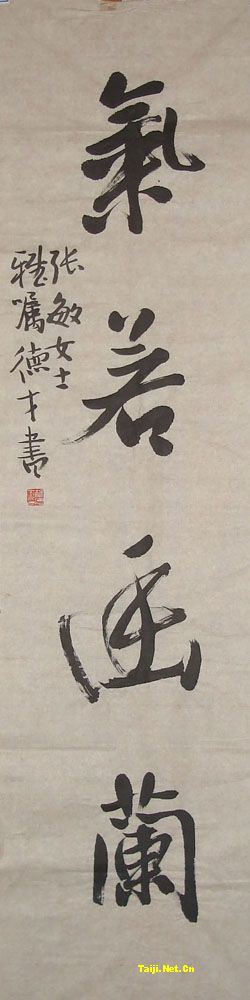 氣若幽蘭
張敏女士
雅嘱德才書
Taiji.Net.Cn